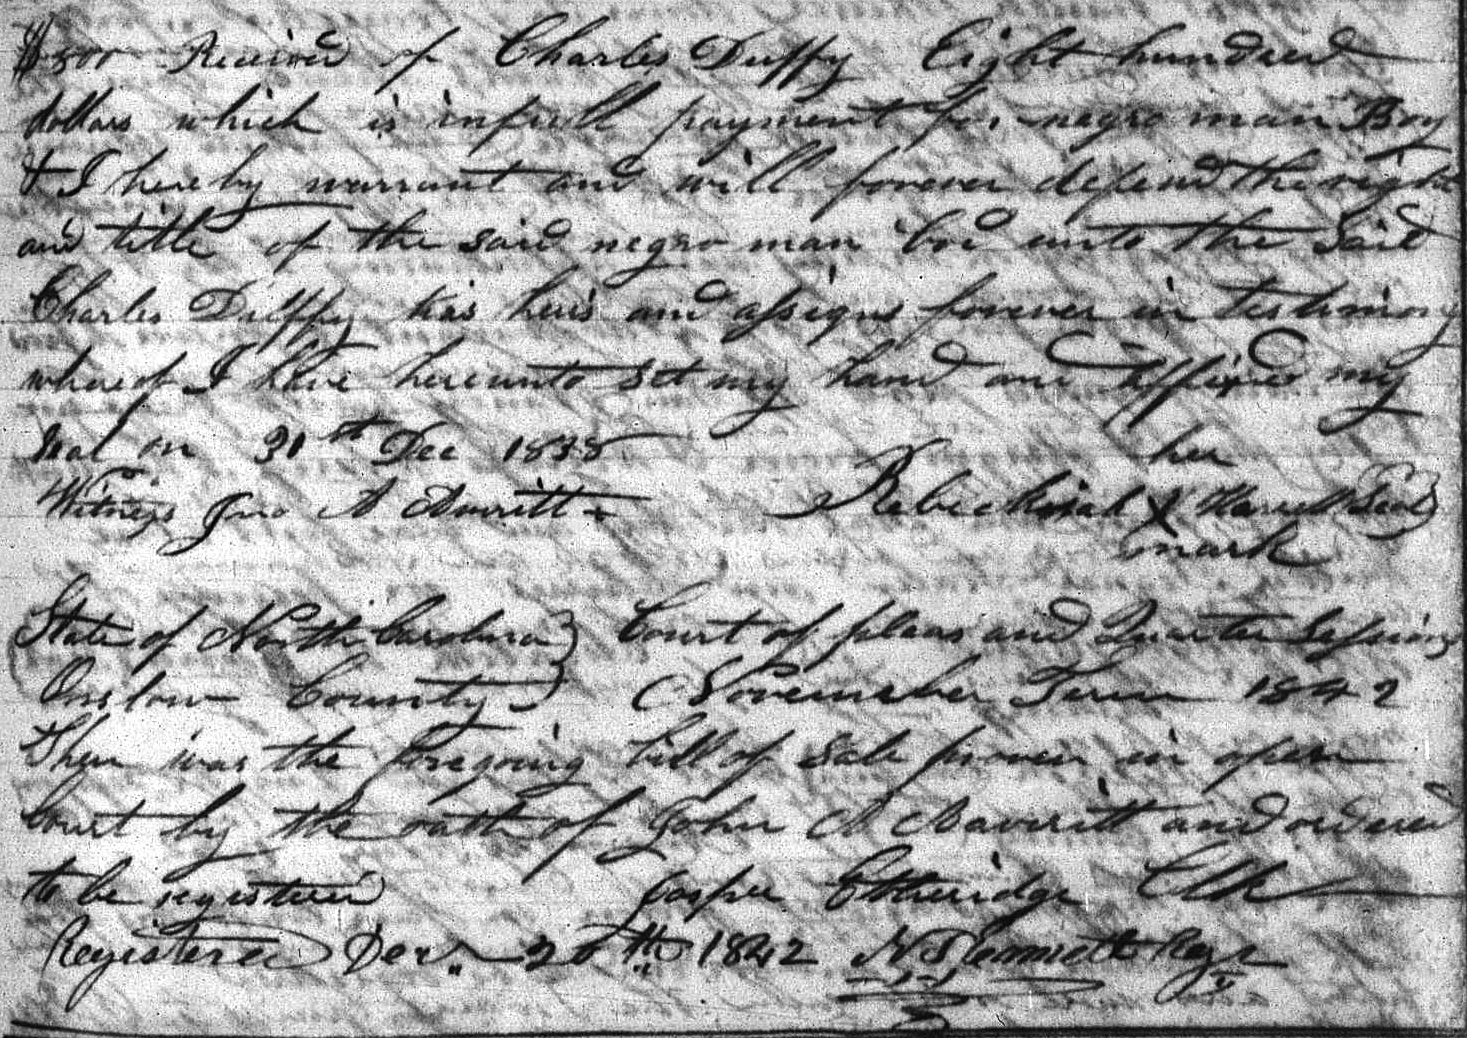 $800 Received of Charles Duffy Eight hundred
dollars which is infull payment for negro man Boy
& I hereby warrant and will forever defend the right
and title of the said negro man unto the said
Charles Duffy his heirs and assigns forever in testimony
whereof I have hereunto set my hand and affixed my
seal on 31st Dec 1838 her
Witness Jno A Averitt Rebeckiah X Harrell Seal
mark
State of North Carolina } Court of pleas and Quarter Sessions
Onslow County } November Term 1842
Then was the foregoing bill of sale proven in open
Court by the oath of John A Averitt and ordered
to be registered Jasper Etheridge Clk
Registered Dec. 20th 1842 Regr